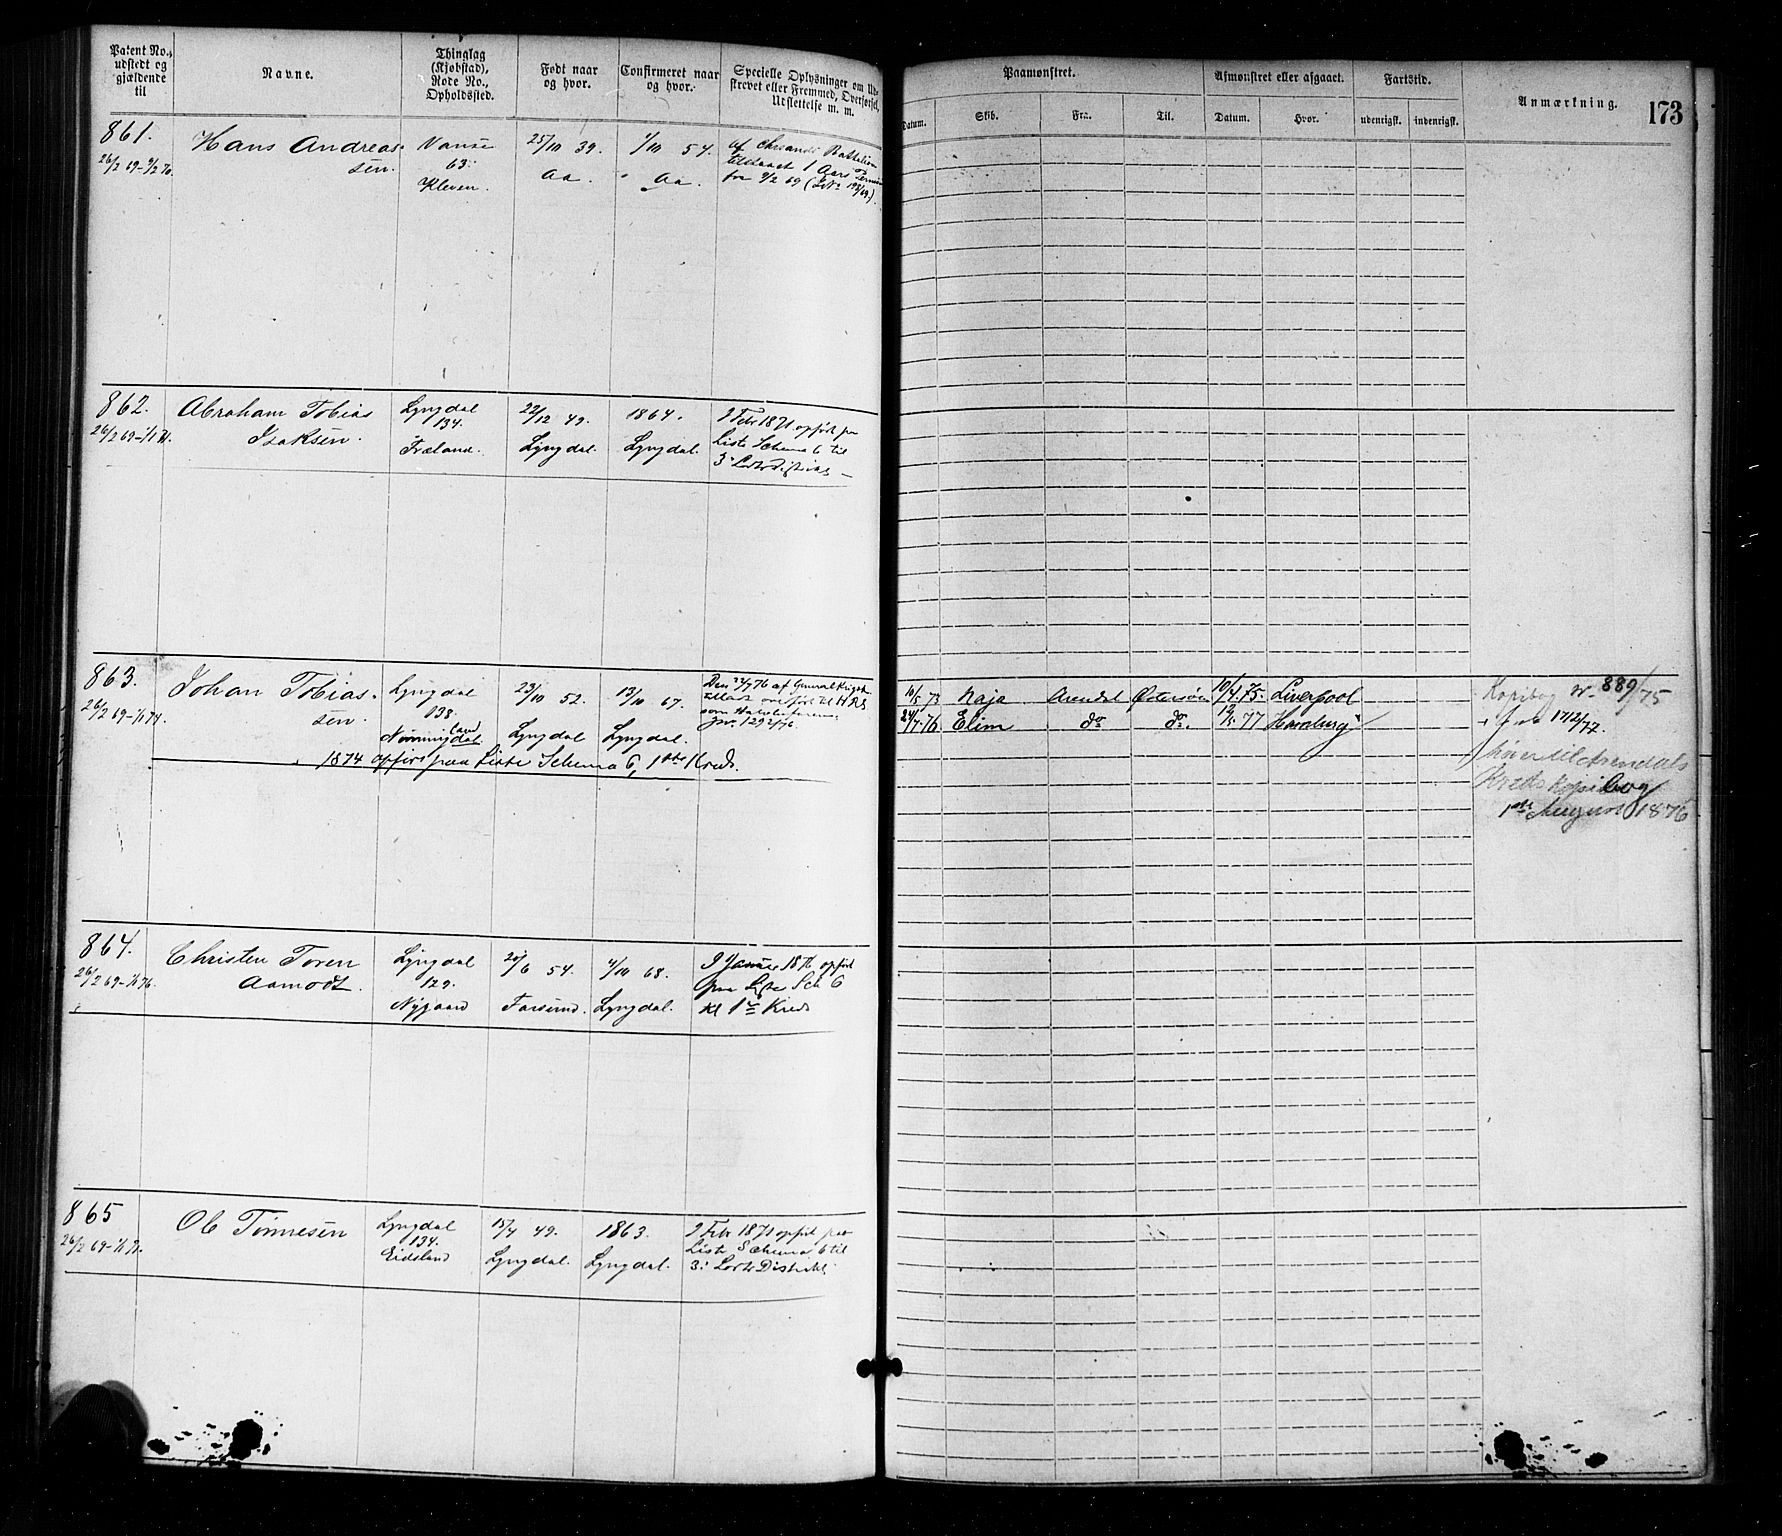 Patent No., udstedt og gjældende til
Navne.
Thinglag (Kjøbstad), Rode No., Opholdssted.
Født naar og hvor.
Confirmeret naar og hvor.
Specielle Oplysninger om Udskrevet eller Fremmed, Overførsel, Udslettelse m. m.
Paamønstret.
Afmønstret eller afgaaet.
Fartstid.
Anmærkning.
173
Datum.
Skib.
Fra.
Til.
Datum.
Hvor.
udenrigsk.
indenrigsk.
861.
26/2 69
Hans Andreas-
sen.
Vanse
63.
Kleven.
25/10 39.
Aa.
1/10 54.
Aa.
af Chrsands Bataillon
tilstaaet 1 Aars
fra 9/2 69
862.
26/2 69-1/1 71.
Abraham Tobias
Isaksen.
Lyngdal
134.
Træland.
22/12 49.
Lyngdal.
1864.
Lyngdal.
I Febr 1871 opført paa
Liste Schema 6 til
3. Lods Distrikt
863.
26/2 69-1/1 74.
Johan Tobias-
sen.
Lyngdal
138.
23/10 52.
Lyngdal
13/10 67.
Lyngdal.
1874 opført paa Liste Schema 6, 1ste Kreds.
16/5 73
Naja
Arendal
Østersøen
10/4 75.
Liverpool
Kopibog No 889/75
24/7 76
Elim
do
do.
77
Hamburg
1712/77.
til Arendals
Kreds kopibog
1ste August 1876
864.
26/2 69-1/1 76.
Christen Toren
Aamodt.
Lyngdal
129.
Nygaard
20/6 54.
Farsund.
4/10 68.
Lyngdal.
I Januar 1876 opført
paa Liste Sch 6
til 1ste Kreds
865
26/2 69-1/1 71.
Ole Tønnesen
Lyngdal
134.
Eidsland
15/4 49.
Lyngdal.
1863.
Lyngdal.
I Febr 1871 opført paa
Liste Schema 6 til
3. Lods Distrikt